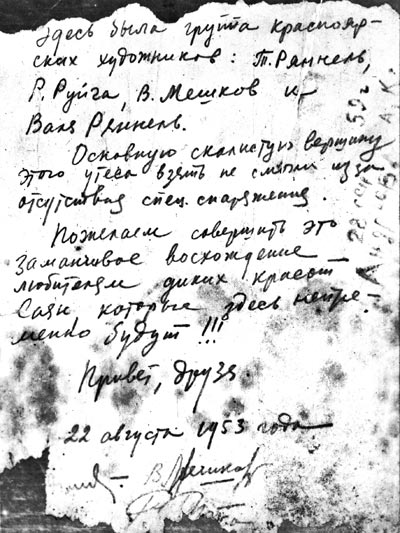 Здесь была группа краснояр-
ских художников: Т. Ряннель,
Р. Руйга, В. Мешков и
Валя Ряннель.
Основную скалистую вершину
этого утеса взять не смогли из за
отсутствия спец. снаряжения.
Пожелаем совершить это
заманчивое восхождение
любителям диких красот
Саян, которые здесь непре-
менно будут!!!
Привет, друзья.
22 августа 1953 года
В. Мешков